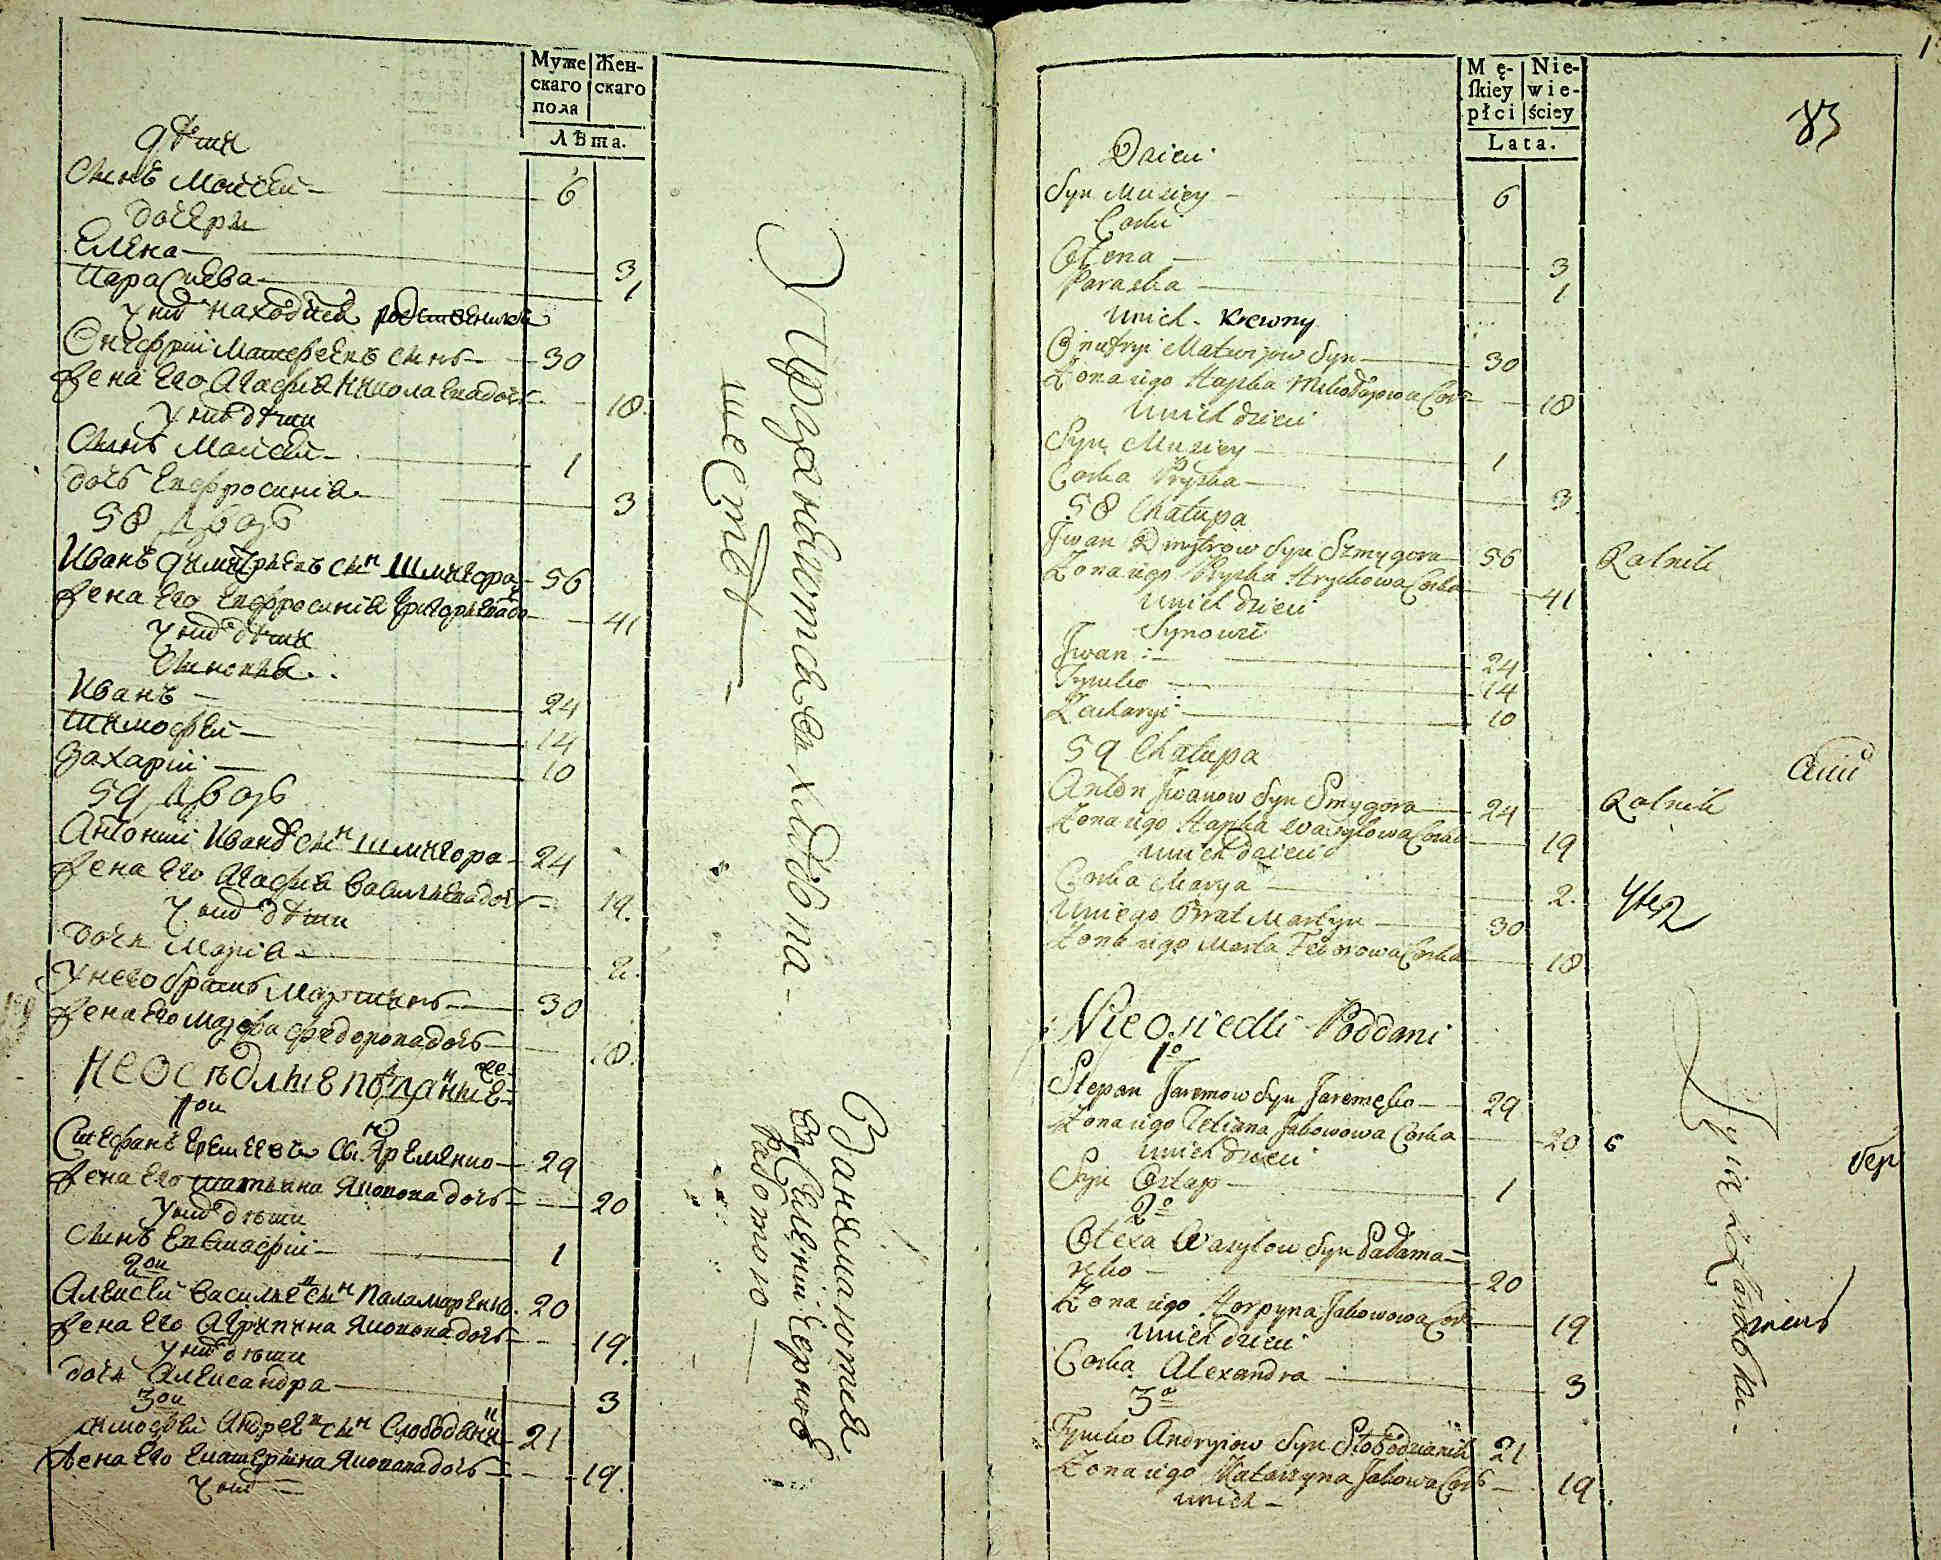 Муже
скаго
пола
Жен-
скаго
Лѣта.
дѣти
Сынъ Мойсей — 6
дочери
Елена — 3
Парасцева — 1
у нихъ находится родственникъ
Онуфрій Матфеевъ сынъ — 30
Жена его Агафія Николаева дочь — 18.
у нихъ дѣти
Сынъ Мойсей — 1
дочь Евфросинія — 3
58 Дворъ
Иванъ Димитріевъ сынъ Шмигора — 56
Жена его Евфросинія Григориева до — 41
у нихъ дѣти
Сыновья
Иванъ — 24
Тимофей — 14
Захарій — 10
59 Дворъ
Антоній Ивановъ сынъ Шмигора — 24
Жена его Агафия Васильева дочь — 19.
у нихъ дѣти
дочь Марія — 2.
у него братъ Мартинъ — 30
Жена его Марфа Федорова дочь — 18.
Неосѣдлые
1ой
Стефанъ Еремеевъ сынъ Яременко — 29
Жена его Татьяна Яковова дочь — 20
у нихъ дѣти
Сынъ Евстафій — 1
2ой
Алексѣй Васильевъ сынъ Паламаренко. 20
Жена его Агрипина Яковова дочь — 19.
у нихъ дѣти
дочь Александра — 3
3ой
Тимофей Андреевъ сынъ Слободяникъ — 21
Жена его Екатерина Яковова дочь — 19.
у нихъ —
Упражняются въ хлѣбопа-
шествѣ —
Занимаются
въ Селеніи черною
работою —
Mę-
ſkiey
płci
Nie-
wie-
ściey
Lata.
83
Dzieci
Syn Muziey — 6
Corki
Ołena — 3
Paraska — 1
Unich Krewny
Onufryi Matwijow Syn — 30
Zona iego Hapka Corka — 18
Unich dzieci
Syn Muziey — 1
Corka Pryska — 3.
58 Chałupa
Jwan Dmytrow Syn Szmygora — 56 Rolnik
Zona iego Pryska Hryckowa Corka — 41
Unich dzieci
Synowie
Jwan — 24
Tymko — 14
Zacharyi — 10
59 Chałupa
Anton Jwanow Syn Szmygora — 24 Rolnik
Zona iego Hapka Wasylowa Corka — 19
Unich dzieci
Corka Marya — 2.
Uniego Brat Martyn — 30
Zona iego Marta Fedorowa Corka — 18
Nieosiedli Poddani
1o
Stepan Jaremow Syn Jaremęko — 29
Zona iego Tetiana Jakowowa Corka — 20 6
Unich dzieci
Syn Ostap — 1
2o
Ołexa Wasylow Syn Pałama-
ręko — 20
Zona iego Horpyna Jakowowa Cor — 19
Unich dzieci
Corka Alexandra — 3
3o
Tymko Andryiow Syn Słobodzianik 21
Zona iego Katarzyna Jakowa Corka — 19.
Unich —